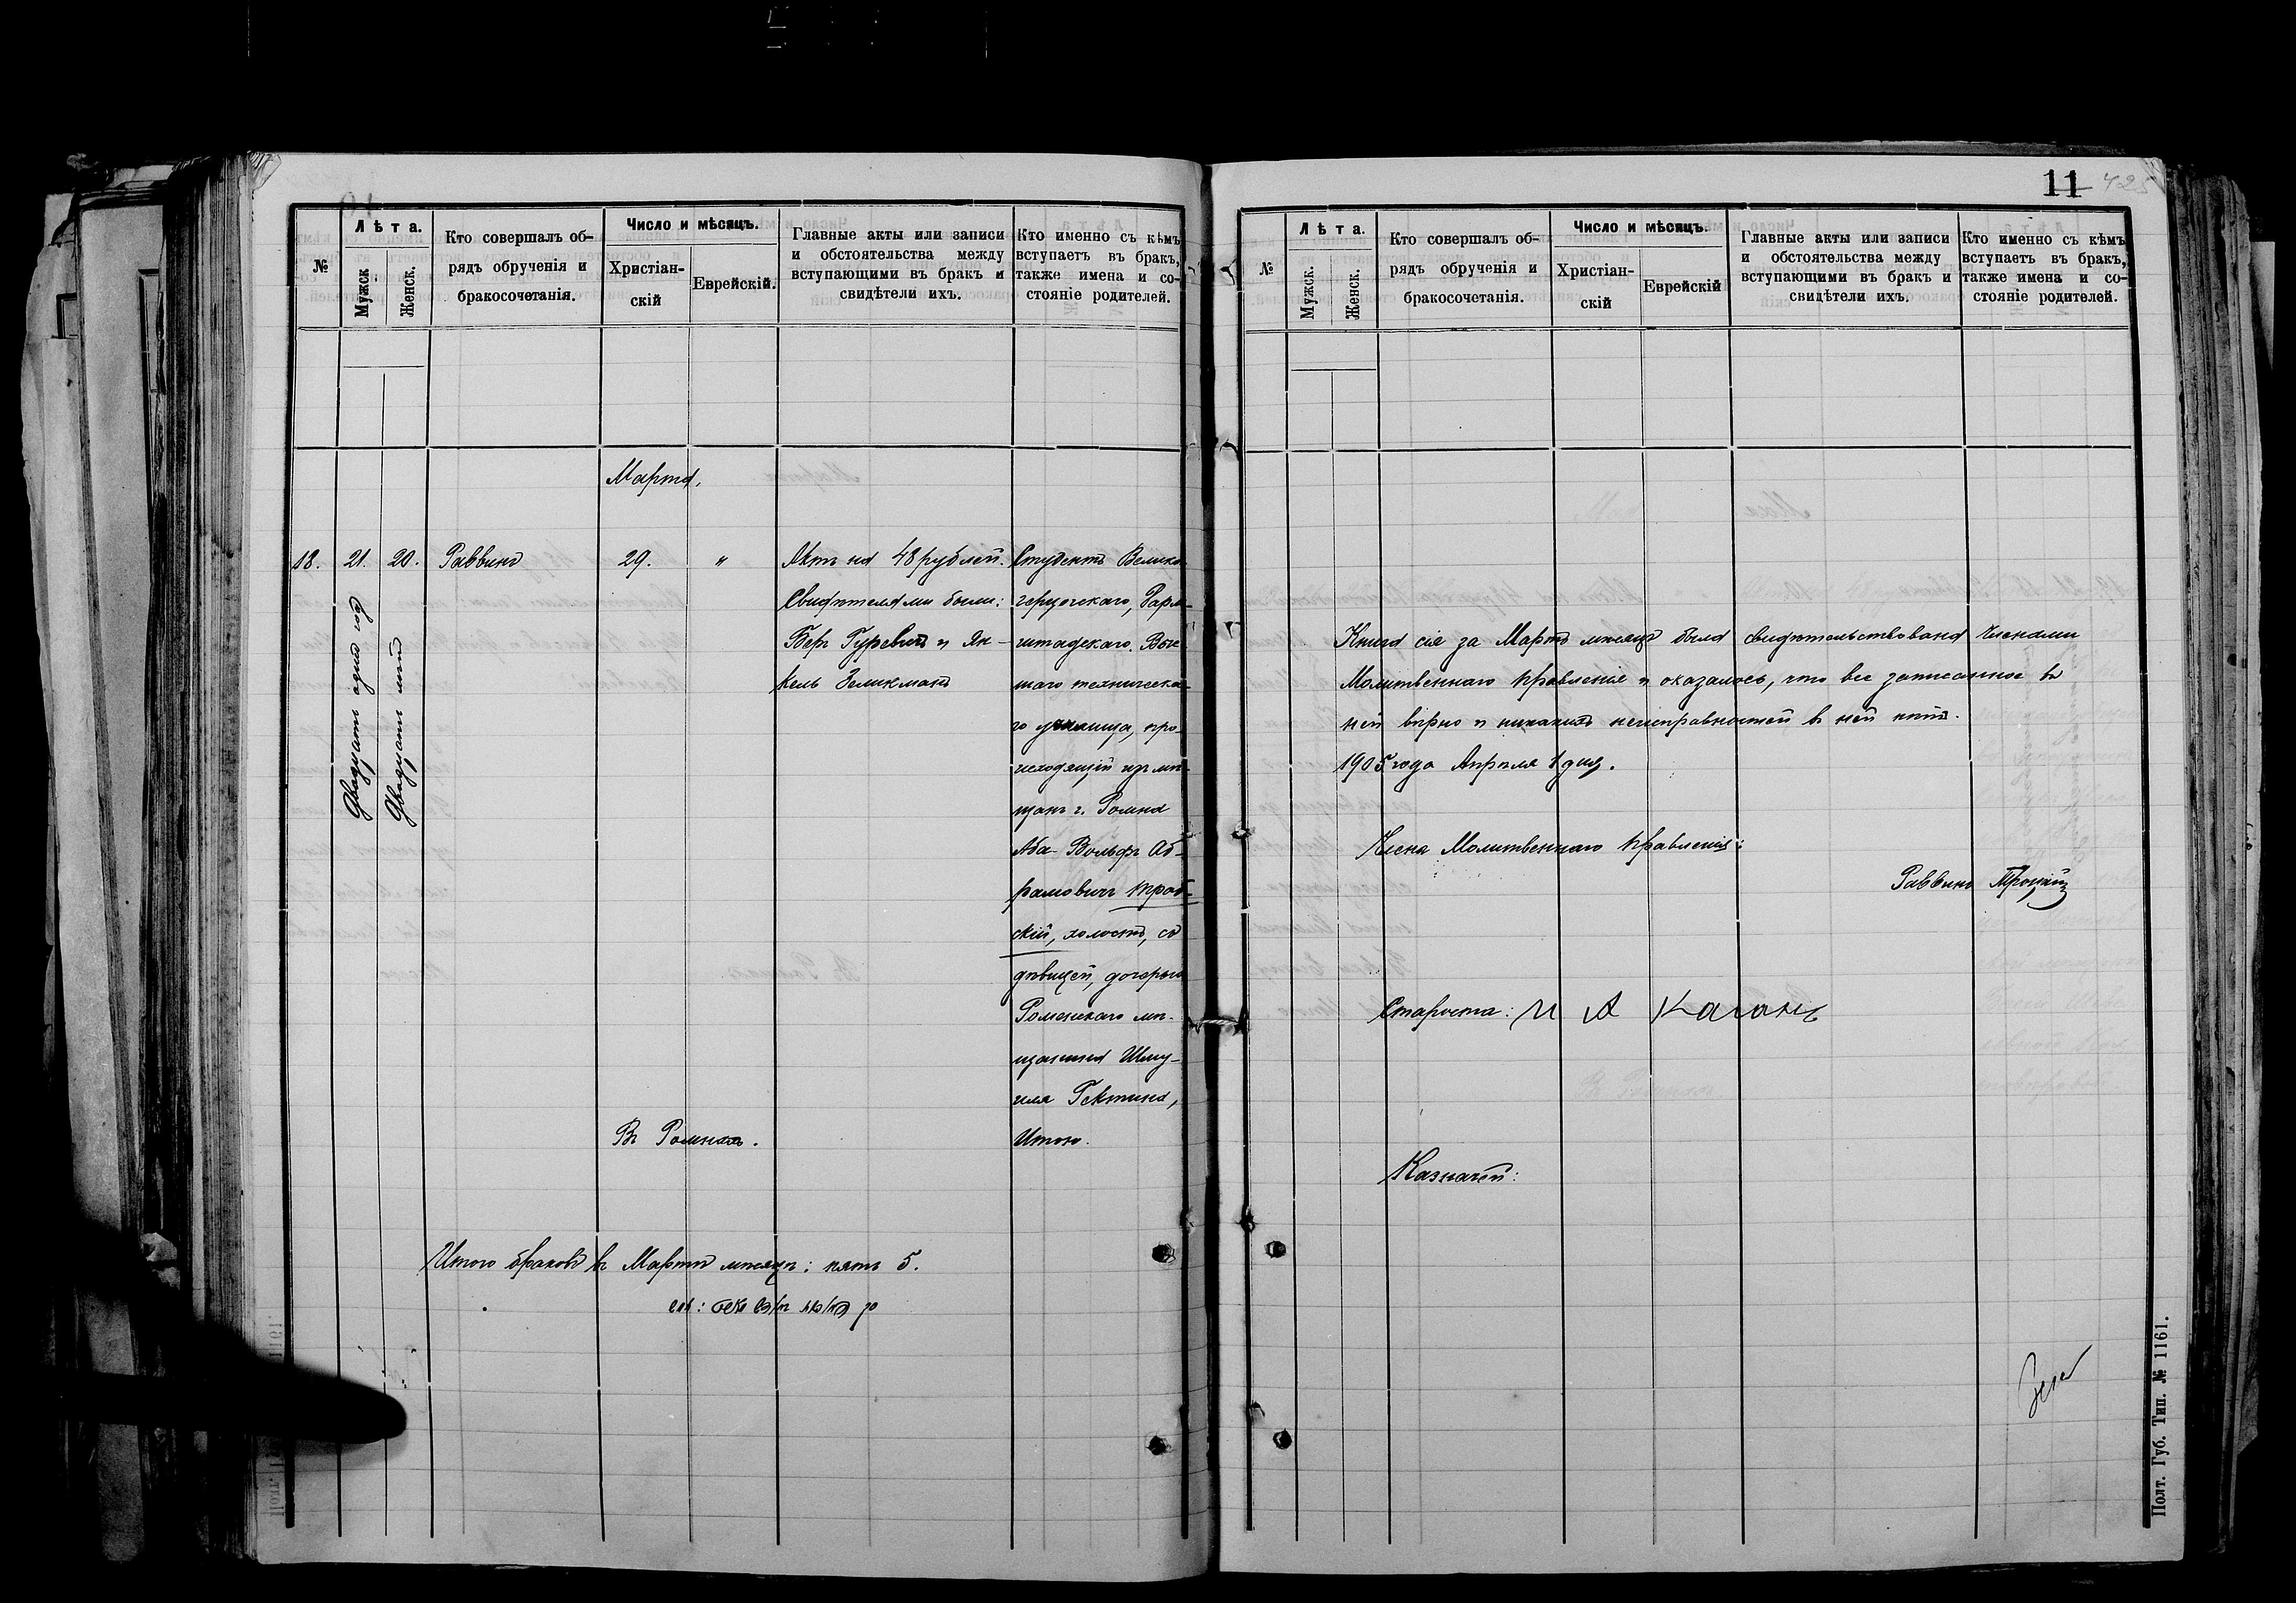 №
Лѣта.
Мужск.
Женск.
Кто совершалъ об-
рядъ обрученія и
бракосочетанія.
Число и мѣсяцъ.
Христіан-
скій
Еврейскій.
Главные акты или записи
и обстоятельства между
вступающими въ бракъ и
свидѣтели ихъ.
Кто именно съ кѣмъ
вступаетъ въ бракъ,
также имена и со-
стояніе родителей.
Марта.
18.
21.
Двадцать одинъ годъ
20.
Двадцать лѣтъ
Раввинъ
29.
"
Въ Ромнахъ.
Актъ на 48 рублей.
Свидѣтелями были:
Беръ Гуревичъ и Ян-
кель Зеликманъ
Студентъ Велико-
герцогскаго, Дарм-
штадскаго Выс
шаго техническа-
го училища, про-
исходящій изъ мѣ-
щанъ г. Ромна
Аба-Вольфъ Аб-
рамовичъ Троц-
скій, холостъ, съ
дѣвицей, дочерью
Роменскаго мѣ-
щанина Шму-
иля
Итою.
Итого браковъ въ Мартѣ мѣсяцѣ: пять 5.
11
425
№
Лѣта.
Мужск.
Женск.
Кто совершалъ об-
рядъ обрученія и
бракосочетанія.
Число и мѣсяцъ.
Христіан-
скій
Еврейскій
Главные акты или записи
и обстоятельства между
вступающими въ бракъ и
свидѣтели ихъ.
Кто именно съ кѣмъ
вступаетъ въ бракъ,
также имена и со-
стояніе родителей.
Книга сія за Мартъ мѣсяцъ была свидѣтельствована Членами
Молитвеннаго Правленія и оказалось, что все записанное въ
ней вѣрно и никакихъ неисправностей въ ней нѣтъ.
1905 года Апрѣля 1 дня.
Члены Молитвеннаго Правленія:
Раввинъ
Староста: И А Каганъ
Казначей:
Полт. Губ. Тип. № 1161.